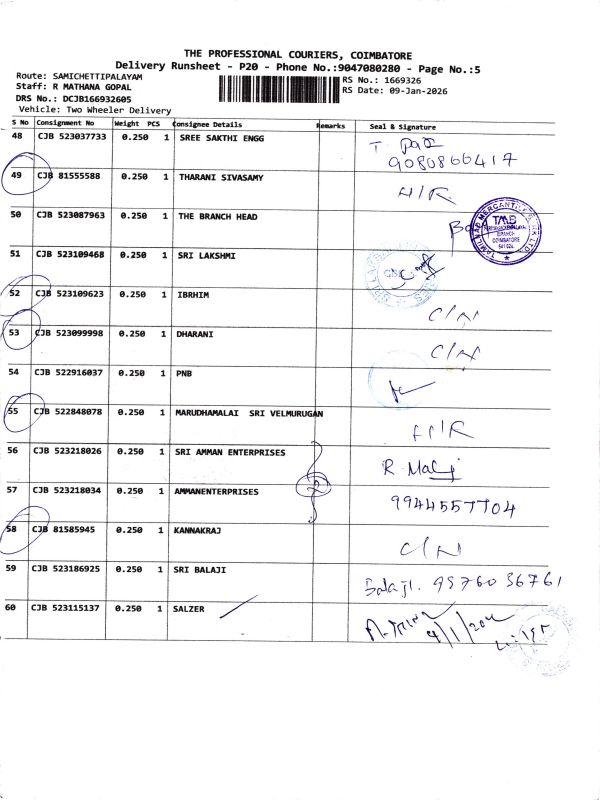 THE PROFESSIONAL COURIERS, COIMBATORE
Delivery Runsheet - P20 - Phone No.:9047080280 - Page No.:5
Route: SAMICHETTIPALAYAM
Staff: R MATHANA GOPAL
DRS No.: DCJB166932605
Vehicle: Two Wheeler Delivery
RS No.: 1669326
RS Date: 09-Jan-2026
S No Consignment No Weight PCS Consignee Details Remarks Seal & Signature
48 CJB 523037733 0.250 1 SREE SAKTHI ENGG
9080866417
49 CJB 81555588 0.250 1 THARANI SIVASAMY H/R
50 CJB 523087963 0.250 1 THE BRANCH HEAD
TAMILNAD MERCANTILE BANK LTD.
TMB
BRANCH
COIMBATORE
51 CJB 523109468 0.250 1 SRI LAKSHMI
52 CJB 523109623 0.250 1 IBRHIM C/N
53 CJB 523099998 0.250 1 DHARANI C/N
54 CJB 522916037 0.250 1 PNB
55 CJB 522848078 0.250 1 MARUDHAMALAI SRI VELMURUGAN H/R
56 CJB 523218026 0.250 1 SRI AMMAN ENTERPRISES
57 CJB 523218034 0.250 1 AMMANENTERPRISES 9944557704
58 CJB 81585945 0.250 1 KANNAKRAJ C/N
59 CJB 523186925 0.250 1 SRI BALAJI Balaji. 9976036761
60 CJB 523115137 0.250 1 SALZER